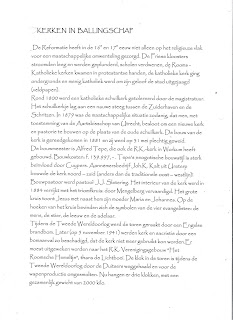 KERKEN IN BALLINGSCHAP
De Reformatie heeft in de 16e en 17e eeuw niet alleen op het religieuze vlak
voor een maatschappelijke omwenteling gezorgd. De Friese kloosters
stroomden leeg en werden geplunderd, scholen verdwenen, de Rooms-
Katholieke kerken kwamen in protestantse handen, de katholieke kerk ging
ondergronds en menig katholiek werd om zijn geloof de stad uitgejaagd
Rond 1800 werd een katholieke schuilkerk getolereerd door de magistratuur.
Het schuilkerkje lag aan een nauwe steeg tussen de Zuiderhaven en de
Schritsen. In 1879 was de maatschappelijke situatie zodanig, dat men, met
toestemming van de Aartsbisschop van Utrecht, besloot om een nieuwe kerk
en pastorie te bouwen op de plaats van de oude schuilkerk. De bouw van de
kerk is gerealiseerd in 1881 en zij werd op 31 mei plechtig gewijd.
De bouwmeester is Alfred Tepe, die ook de R.K.-kerk in Workum heeft
gebouwd. Bouwkosten: f. 138.997,-. Tepe's neogotische bouwstijl is sterk
beïnvloed door Cuypers. Aannemersbedrijf Joh.K. Kalt uit IJlst
bouwde de kerk noord – zuid (anders dan de traditionele oost – westlijn).
Bouwpastoor werd pastoor J.J. Simering. Het interieur van de kerk werd in
1884 verrijkt met het hoofdaltaar door Mengelberg vervaardigd. Het grote
kruis toont Jezus met naast hem zijn moeder Maria en Johannes. Op de
hoeken van het kruis bevinden zich de symbolen van de vier evangelisten: de
mens, de stier, de leeuw en de adelaar.
Tijdens de Tweede Wereldoorlog werd de toren geraakt door een Engelse
brandbom. Later (op 3 november 1941) werden kerk en consistorie door een
bomaanval zo beschadigd, dat de kerk niet meer gebruikt kon worden. Er
moest uitgeweken worden naar het R.K. Verenigingsgebouw "Het
Roomsche Hemeltje", thans de Lichtboei. De klok in de toren is tijdens de
Tweede Wereldoorlog door de Duitsers weggehaald en voor de
wapenproductie omgesmolten. Nu hangen er drie klokken, met een
gezamenlijk gewicht van 2000 kilo.